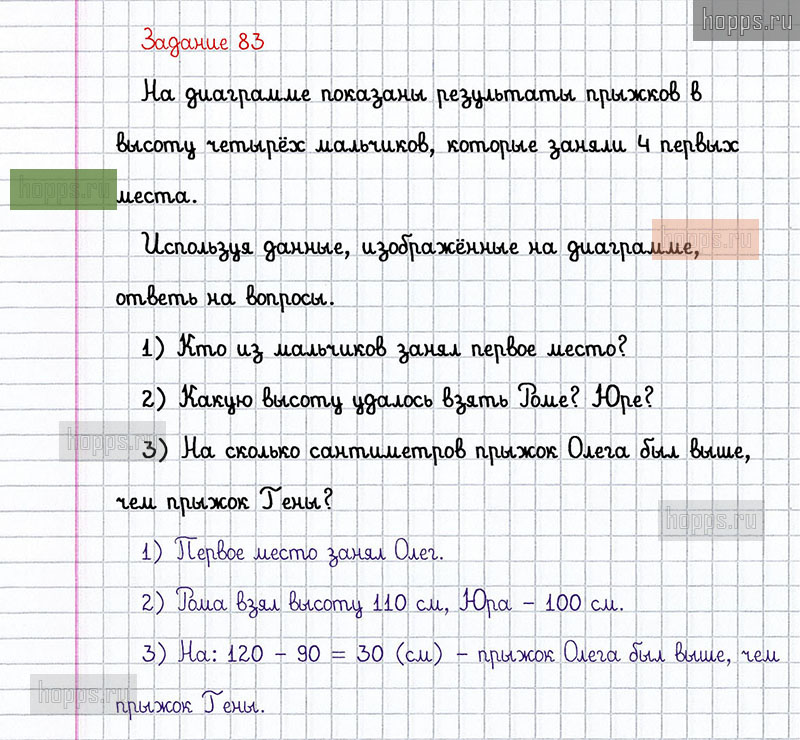 hopps.ru
Задание 83
На диаграмме показаны результаты прыжков в
высоту четырёх мальчиков, которые заняли 4 первых
hopps.ru
места.
hopps.ru
Используя данные, изображённые на диаграмме,
ответь на вопросы.
1) Кто из мальчиков занял первое место?
2) Какую высоту удалось взять Роме? Юре?
hopps.ru
3) На сколько сантиметров прыжок Олега был выше,
чем прыжок Гены?
hopps.ru
1) Первое место занял Олег.
2) Рома взял высоту 110 см, Юра – 100 см.
3) На: 120 – 90 = 30 (см) – прыжок Олега был выше, чем
hopps.ru
прыжок Гены.